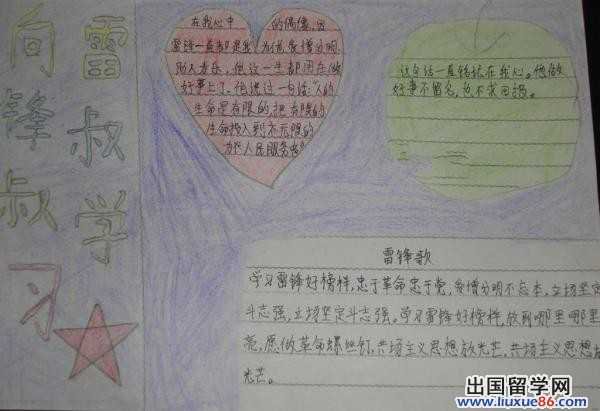 向锋叔习
雷叔学
在我心中 的偶像,因
雷锋一直都是我 为他爱憎分明,
助人为乐,他这一生都用在做
好事上了。他说过一句话:"人的
生命是有限的,把有限的
生命投入到无限的
为人民服务
这句话一直铭记在我心。他做
好事不留名,也不求回报。
雷锋歌
学习雷锋好榜样,忠于革命忠于党,爱憎分明不忘本,立场坚定
斗志强,立场坚定斗志强。学习雷锋好榜样,放到哪里哪里
亮,愿做革命螺丝钉,共场主义思想放光芒,共场主义思想放
光芒。
出国留学网
www.liuxue86.com